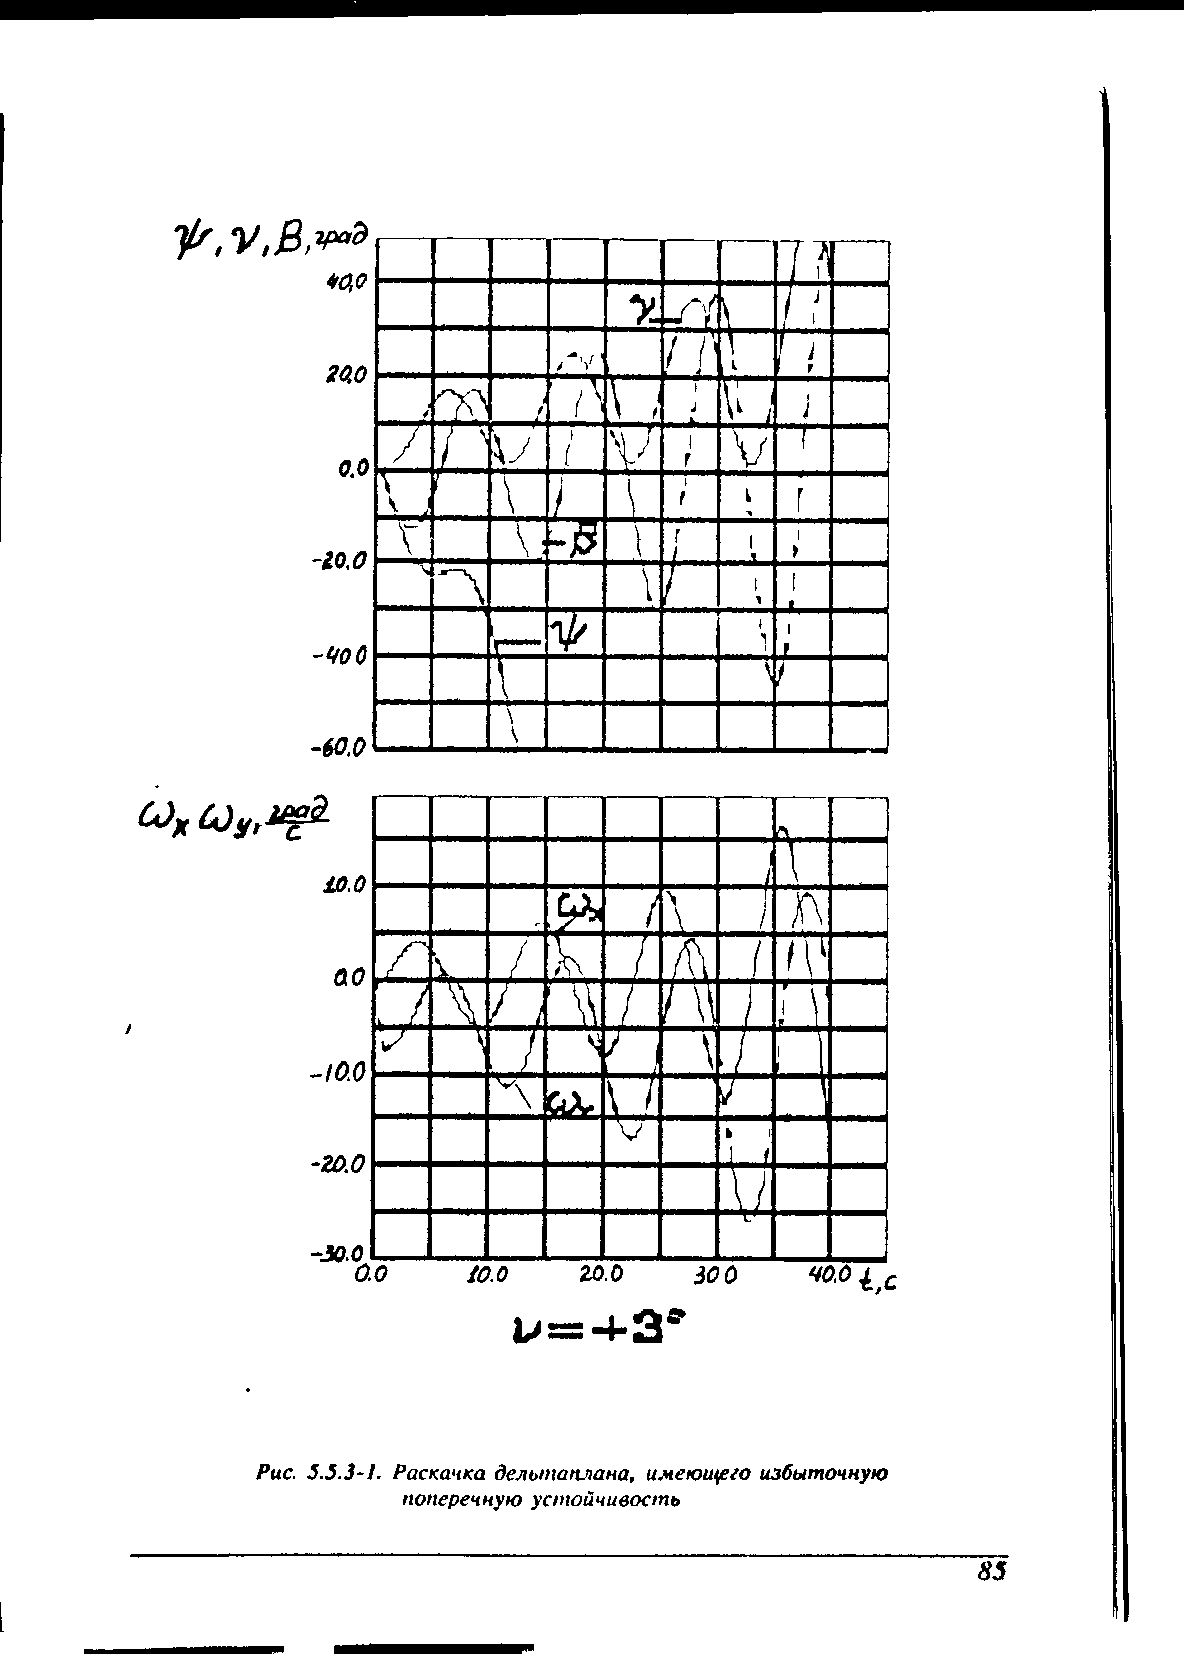 ψ, γ, β, град
40,0
20,0
0.0
-20.0
-40 0
-60.0
γ
ψ
ωx ωy, град/с
10.0
0.0
-10.0
-20.0
-30.0
ωx
0.0 10.0 20.0 30 0 40.0 t, с
ν = +3°
Рис. 5.5.3-1. Раскачка дельтаплана, имеющего избыточную
поперечную устойчивость
85